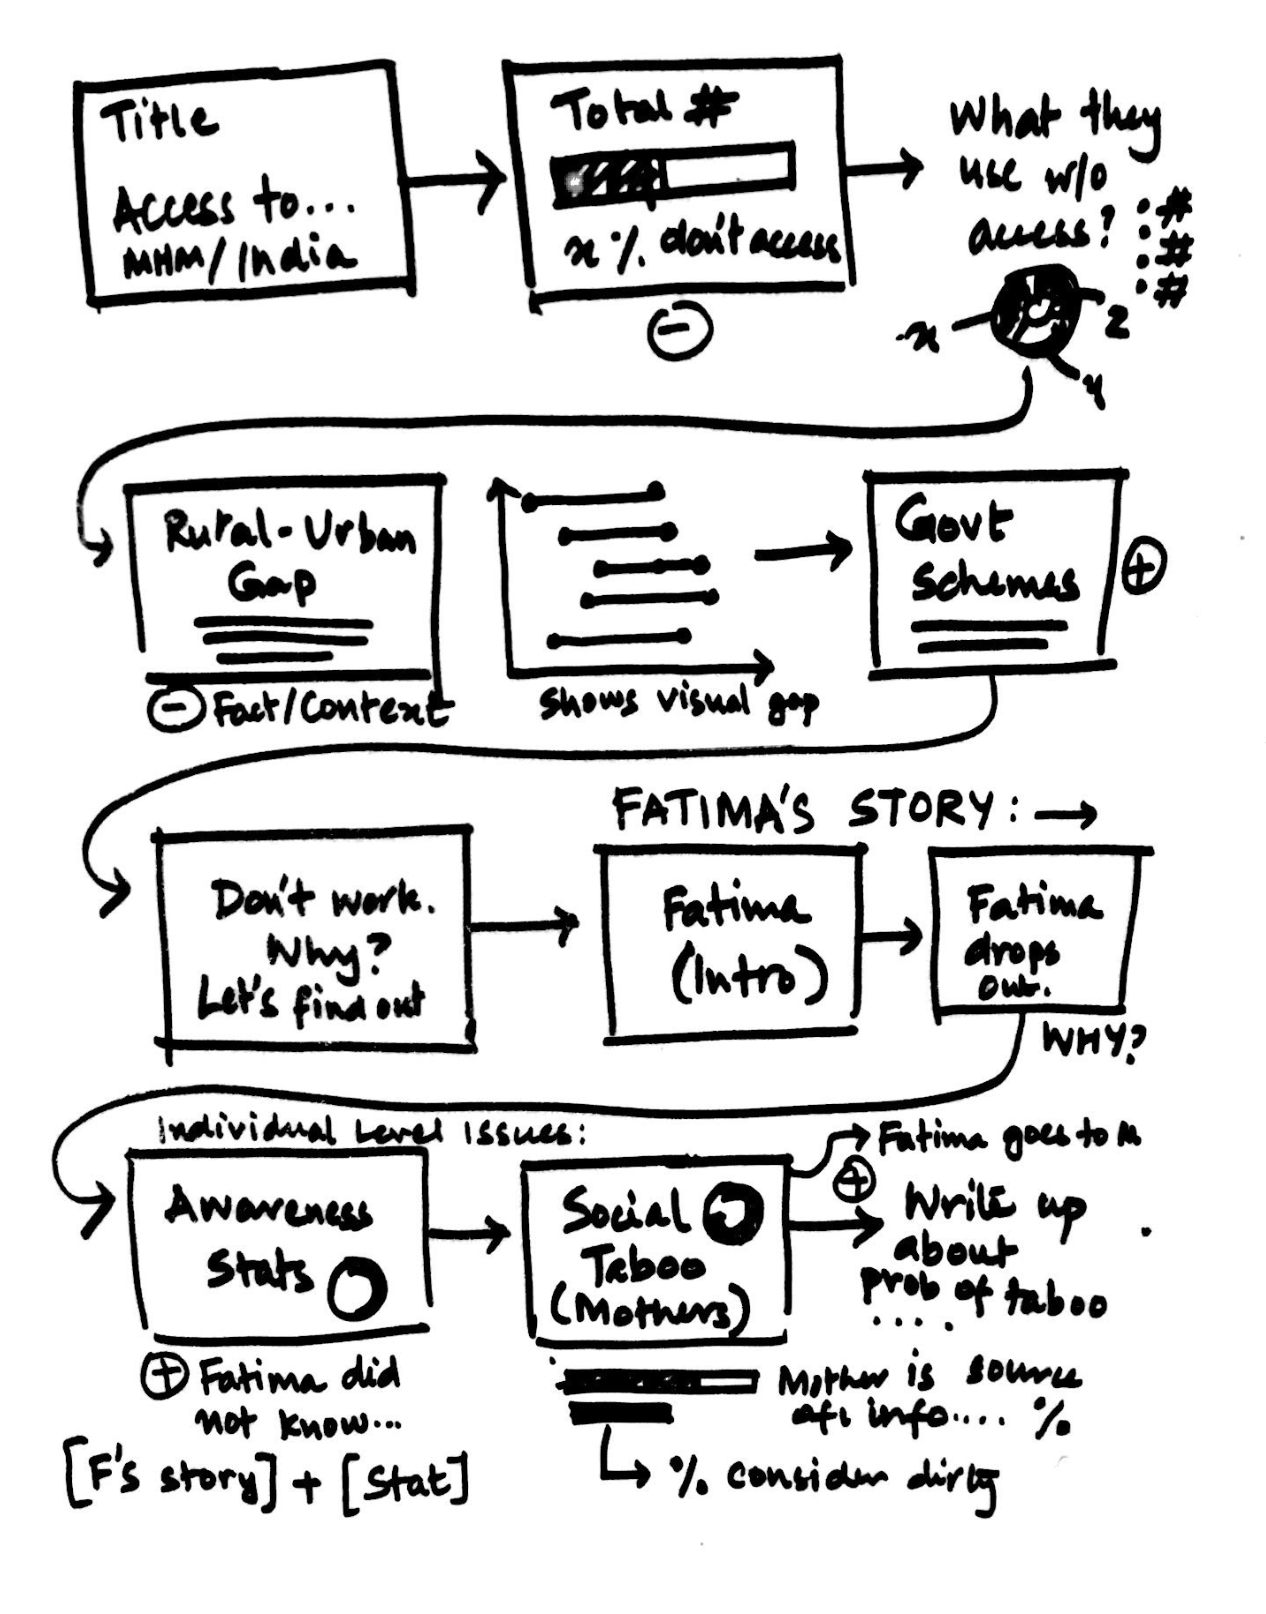 Title
Access to...
MHM/India
Total #
x % don't access
What they
use w/o
access?
• #
• #
• #
x
z
y
Rural-Urban
Gap
Fact/Context
shows visual gap
Govt
Schemes
FATIMA'S STORY:
Don't work.
Why?
Let's find out
Fatima
(Intro)
Fatima
drops
out.
WHY?
Individual Level Issues:
Awareness
Stats
Fatima did
not know...
[F's story] + [Stat]
Social
Taboo
(Mothers)
Fatima goes to M
Write up
about
prob of taboo
....
Mother is source
info.... %
% consider dirty